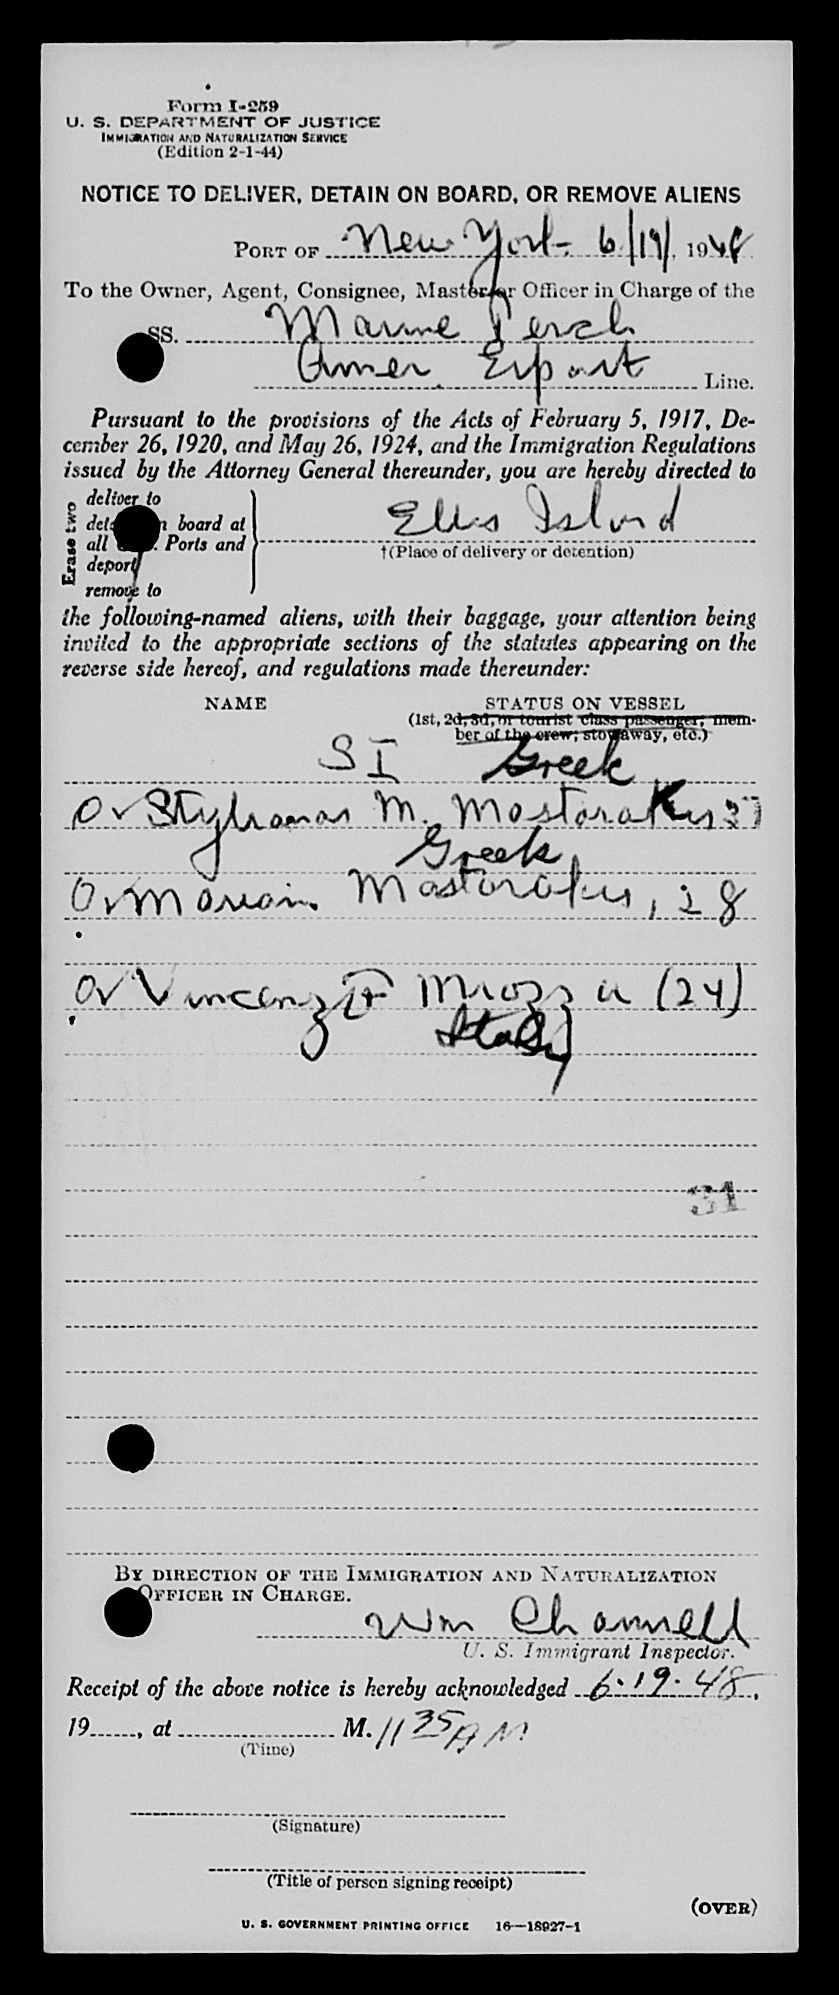 Form I-259
U. S. DEPARTMENT OF JUSTICE
IMMIGRATION AND NATURALIZATION SERVICE
(Edition 2-1-44)
NOTICE TO DELIVER, DETAIN ON BOARD, OR REMOVE ALIENS
PORT OF New York 6/19/, 1948
To the Owner, Agent, Consignee, Master or Officer in Charge of the
SS. Marine Perch
Amer. Export Line.
Pursuant to the provisions of the Acts of February 5, 1917, De-
cember 26, 1920, and May 26, 1924, and the Immigration Regulations
issued by the Attorney General thereunder, you are hereby directed to
Erase two
deliver to
board at Ellis Island
all Ports and
†(Place of delivery or detention)
deport
remove to
the following-named aliens, with their baggage, your attention being
invited to the appropriate sections of the statutes appearing on the
reverse side hereof, and regulations made thereunder:
NAME STATUS ON VESSEL
(1st, 2d, 3d, or tourist class passenger; mem-
ber of the crew; stowaway, etc.)
SI Greek
O ✓ Stylianos M. Mastorakis 37
Greek
O ✓ Marian Mastorakis, 28
O ✓ Vincenza Miozza (24)
Italy
31
BY DIRECTION OF THE IMMIGRATION AND NATURALIZATION
OFFICER IN CHARGE.
Wm Channell
U. S. Immigrant Inspector.
Receipt of the above notice is hereby acknowledged 6·19·48,
19......, at M. 11 35 AM
(Time)
(Signature)
(Title of person signing receipt)
(OVER)
U. S. GOVERNMENT PRINTING OFFICE 16—18927-1